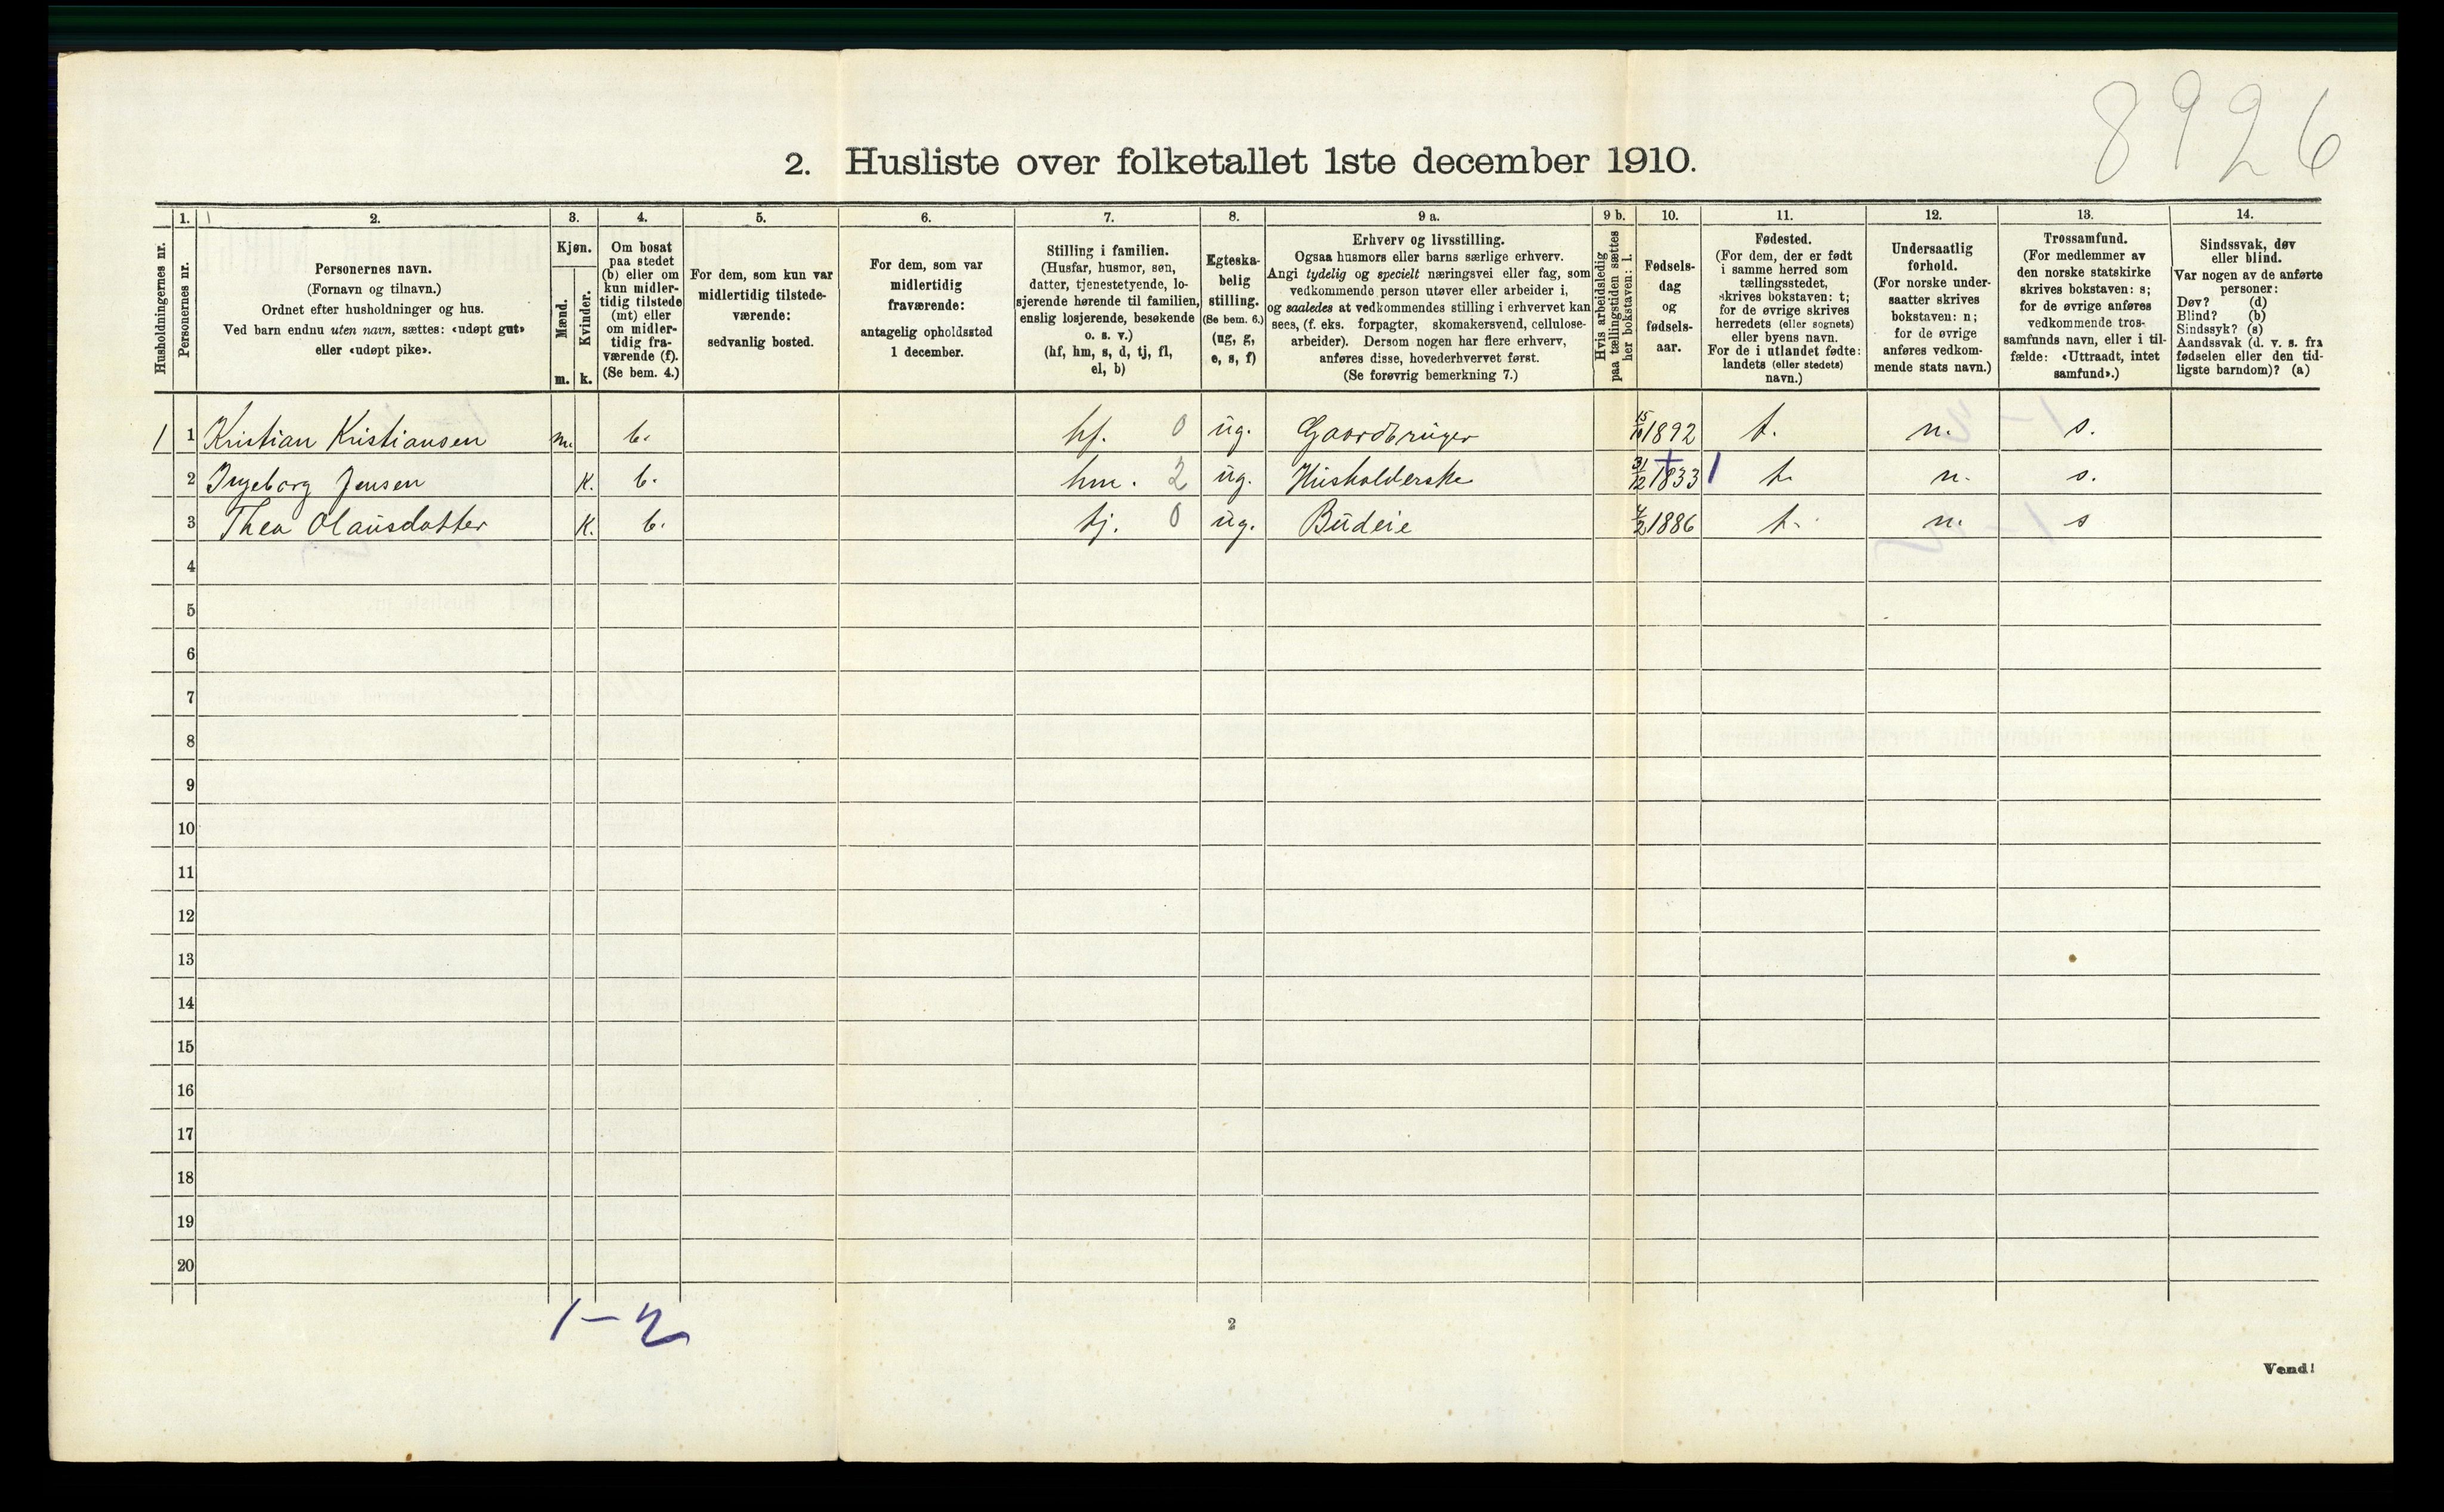 8926
2. Husliste over folketallet 1ste december 1910.
Husholdningernes nr.
1.
Personernes nr.
2.
Personernes navn.
(Fornavn og tilnavn.)
Ordnet efter husholdninger og hus.
Ved barn endnu uten navn, sættes: «udøpt gut»
eller «udøpt pike».
3.
Kjøn.
Mænd.
Kvinder.
m. k.
4.
Om bosat
paa stedet
(b) eller om
kun midler-
tidig tilstede
(mt) eller
om midler-
tidig fra-
værende (f).
(Se bem. 4.)
5.
For dem, som kun var
midlertidig tilstede-
værende:
sedvanlig bosted.
6.
For dem, som var
midlertidig
fraværende:
antagelig opholdssted
1 december.
7.
Stilling i familien.
(Husfar, husmor, søn,
datter, tjenestetyende, lo-
sjerende hørende til familien,
enslig losjerende, besøkende
o. s. v.)
(hf, hm, s, d, tj, fl,
el, b)
8.
Egteska-
belig
stilling.
(Se bem. 6.)
(ug, g,
e, s, f)
9 a.
Erhverv og livsstilling.
Ogsaa husmors eller barns særlige erhverv.
Angi tydelig og specielt næringsvei eller fag, som
vedkommende person utøver eller arbeider i,
og saaledes at vedkommendes stilling i erhvervet kan
sees, (f. eks. forpagter, skomakersvend, cellulose-
arbeider). Dersom nogen har flere erhverv,
anføres disse, hovederhvervet først.
(Se forøvrig bemerkning 7.)
9 b.
Hvis arbeidsledig
paa tællingstiden sættes
her bokstaven: l.
10.
Fødsels-
dag
og
fødsels-
aar.
11.
Fødested.
(For dem, der er født
i samme herred som
tællingsstedet,
skrives bokstaven: t;
for de øvrige skrives
herredets (eller sognets)
eller byens navn.
For de i utlandet fødte:
landets (eller stedets)
navn.)
12.
Undersaatlig
forhold.
(For norske under-
saatter skrives
bokstaven: n;
for de øvrige
anføres vedkom-
mende stats navn.)
13.
Trossamfund.
(For medlemmer av
den norske statskirke
skrives bokstaven: s;
for de øvrige anføres
vedkommende tros-
samfunds navn, eller i til-
fælde: «Uttraadt, intet
samfund».)
14.
Sindssvak, døv
eller blind.
Var nogen av de anførte
personer:
Døv? (d)
Blind? (b)
Sindssyk? (s)
Aandssvak (d. v. s. fra
fødselen eller den tid-
ligste barndom)? (a)
1 1 Kristian Kristiansen m. b. hf. 0 ug. Gaardbruger 1892 t. n. s.
2 Ingeborg Jensen K. b. hm. 2 ug. Husholderske 31/12 1833 t. n. s.
3 Thea Olausdatter K. b. tj. 0 ug. Budeie 1886 t. n. s
4
5
6
7
8
9
10
11
12
13
14
15
16
17
18
19
20
1-2
2
Vend!